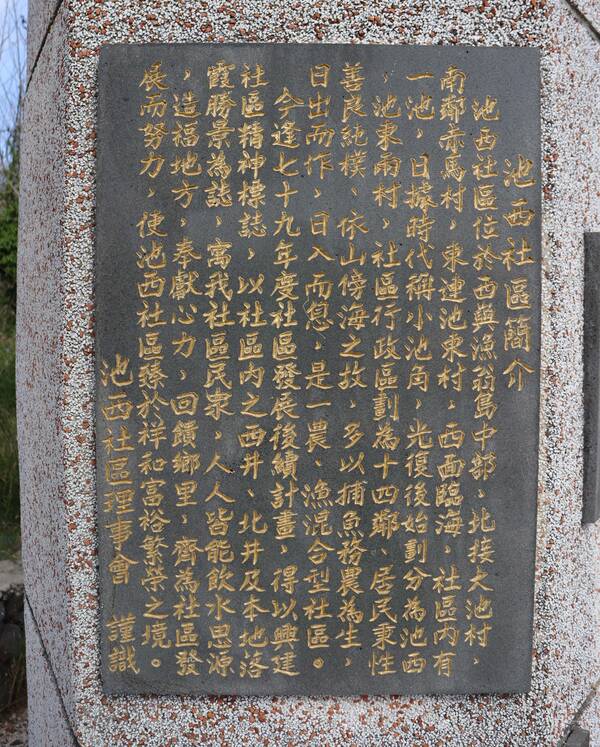 池西社區簡介
池西社區位於西與漁翁島中部，北接大池村，
南鄰赤馬村，東連池東村，西面臨海，社區內有
一池，日據時代稱小池角，光復後始劃分為池西
，池東兩村，社區行政區劃為十四鄰、居民秉性
善良純樸、依山傍海之故，多以捕魚務農為生，
日出而作，日入而息，是一農、漁混合型社區。
今逢七十九年度社區發展後續計畫，得以興建
社區精神標誌，以社區內之西井、北井及本地落
霞勝景為誌，寓我社區民眾，人人皆能飲水思源
，造福地方、奉獻心力，回饋鄉里，齊為社區發
展而努力，使池西社區臻於祥和富裕繁榮之境。
池西社區理事會 謹識